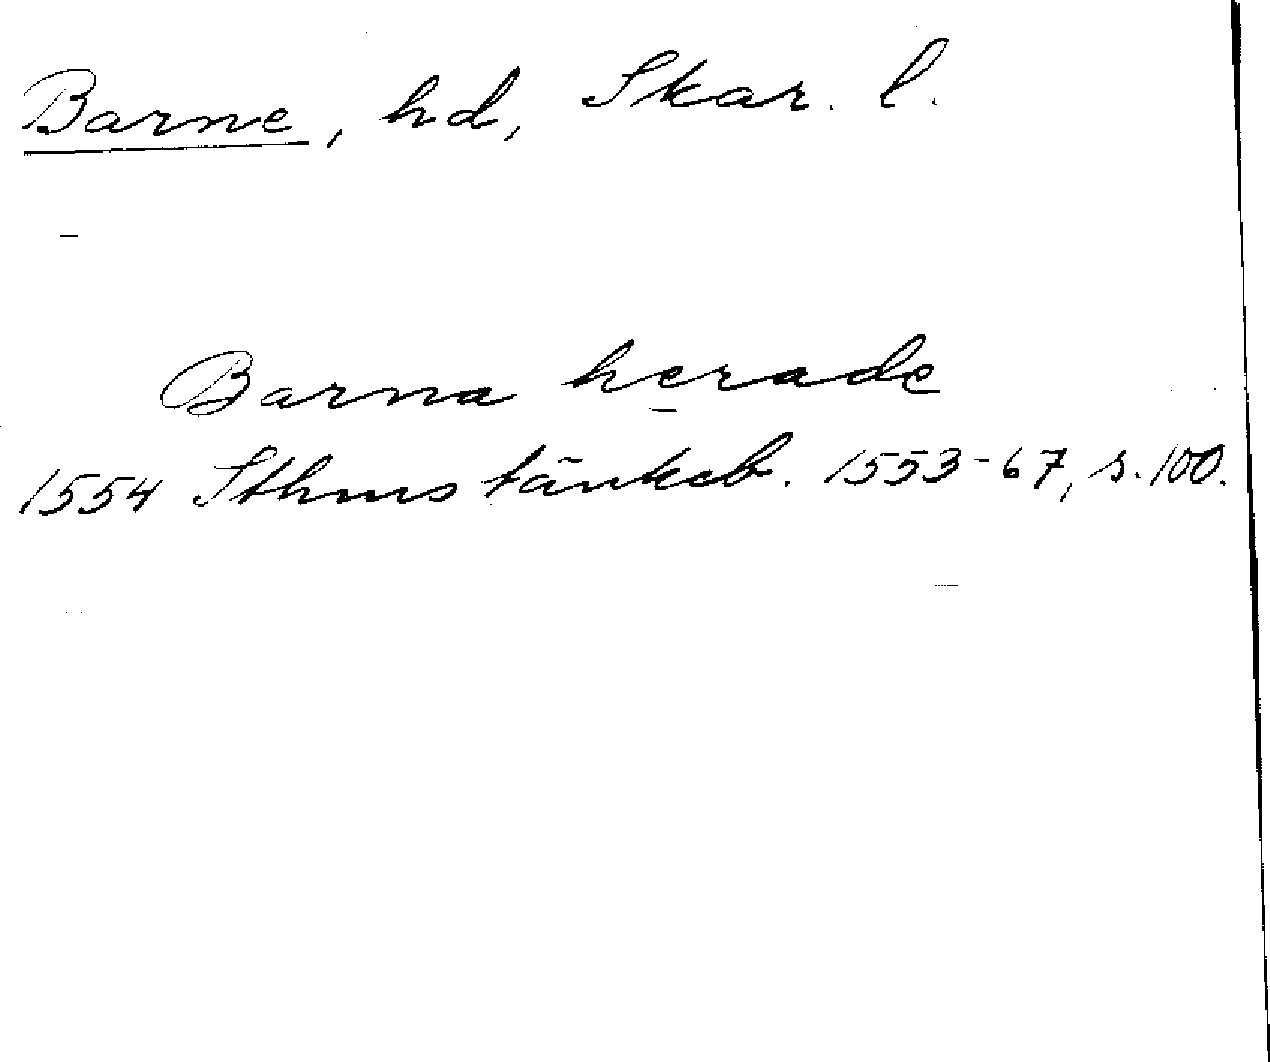 Barne, hd, Skar. l.
Barna herade
1554 Sthms tänkeb. 1553-67, s. 100.